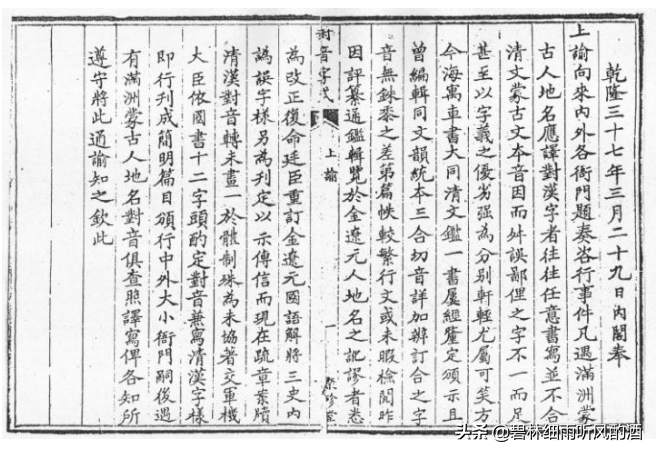 乾隆三十七年三月二十九日內閣奉
上諭向來內外各衙門題奏咨行事件凡遇滿洲蒙
古人地名應譯對漢字者往往任意書寫並不合
清文蒙古文本音因而舛誤鄙俚之字不一而足
甚至以字義之優劣強為分別軒輊尤屬可笑方
今海寓車書大同清文鑑一書屢經釐定頒示且
曾編輯同文韻統本三合切音詳加辨訂合之字
音無銖黍之差第篇帙較繁行文或未暇檢閱昨
對音字式
上諭
一
聚珍堂
因評纂通鑑輯覽於金遼元人地名之訛謬者悉
為改正復命廷臣重訂金遼元國語解將三史內
譌誤字樣另為刊定以示傳信而現在疏章案牘
清漢對音轉未畫一於體制殊為未協著交軍機
大臣依國書十二字頭酌定對音兼寫清漢字樣
即行刊成簡明篇目頒行中外大小衙門嗣後遇
有滿洲蒙古人地名對音俱查照譯寫俾各知所
遵守將此通諭知之欽此
头条 @碧林细雨听风的酒